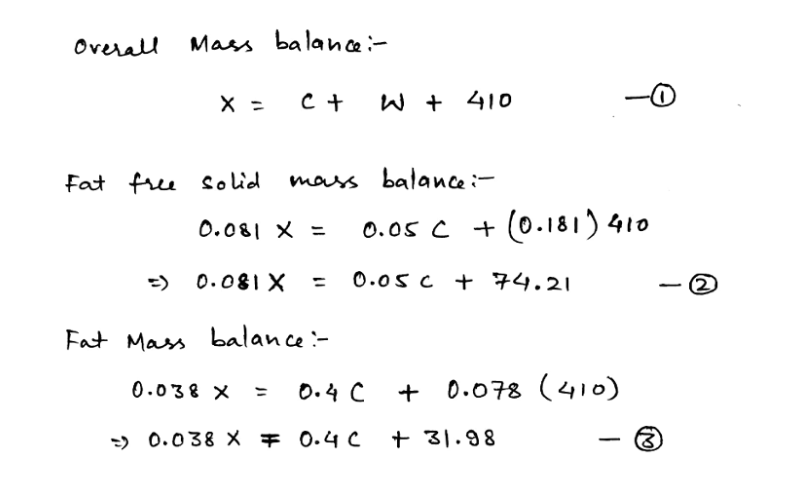 Overall Mass balance:-
X = C + W + 410 —①
Fat free solid mass balance:-
0.081 X = 0.05 C + (0.181) 410
=> 0.081 X = 0.05 C + 74.21 —②
Fat Mass balance:-
0.038 X = 0.4 C + 0.078 (410)
=> 0.038 X = 0.4 C + 31.98 —③